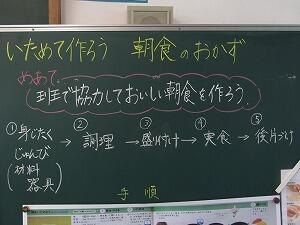 いためて作ろう 朝食のおかず
めあて
班で協力しておいしい朝食を作ろう。
①身じたく じゅんび (材料 器具) → ②調理 → ③盛り付け → ④実食 → ⑤後片づけ
手順